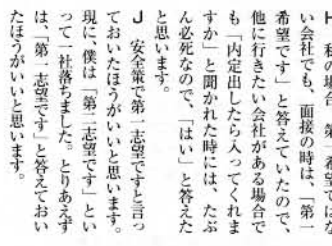 H　私の場合、第一希望ではな
い会社でも、面接の時は、「第一
希望です」と答えていたので、
他に行きたい会社がある場合で
も「内定出したら入ってくれま
すか」と聞かれた時には、たぶ
ん必死なので、「はい」と答えた
と思います。
J　安全策で第一志望ですと言っ
ておいたほうがいいと思います。
現に、僕は「第二志望です」とい
って一社落ちました。とりあえず
は、「第一志望です」と答えておい
たほうがいいと思います。